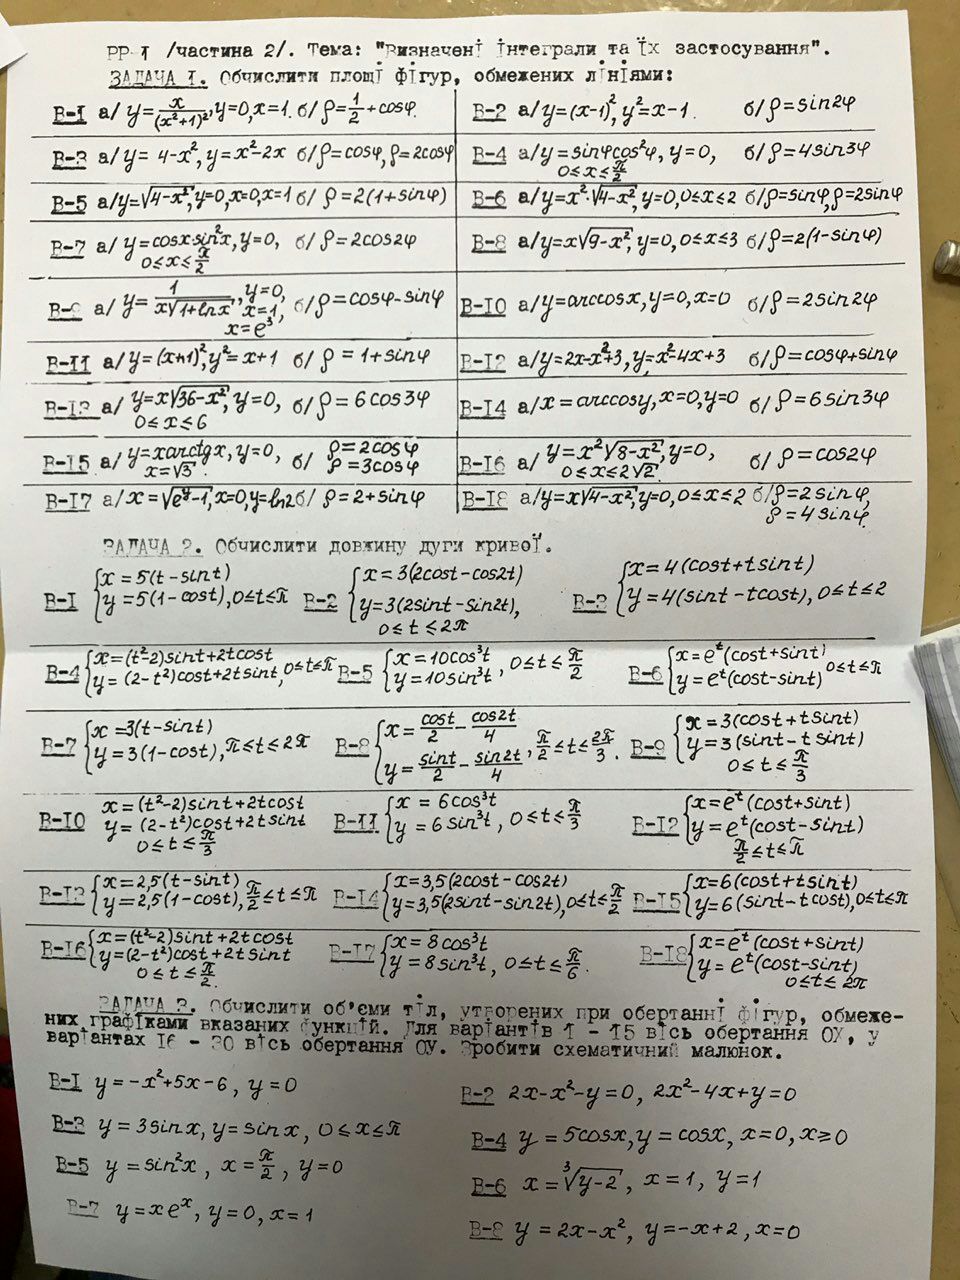 РР-1 /частина 2/. Тема: "Визначені інтеграли та їх застосування".
ЗАДАЧА I. Обчислити площі фігур, обмежених лініями:
В-1 а/ y=x/(x²+1)², y=0, x=1. б/ ρ=1/2+cosφ.
В-2 а/ y=(x-1)², y²=x-1. б/ ρ=sin2φ
В-3 а/ y= 4-x², y=x²-2x б/ ρ=cosφ, ρ=2cosφ
В-4 а/ y=sinφcos²φ, y=0, 0≤x≤π/2 б/ ρ=4sin3φ
В-5 а/ y=√(4-x²), y=0, x=0, x=1 б/ ρ=2(1+sinφ)
В-6 а/ y=x²·√(4-x²), y=0, 0≤x≤2 б/ ρ=sinφ, ρ=2sinφ
В-7 а/ y=cosx sin²x, y=0, 0≤x≤π/2 б/ ρ=2cos2φ
В-8 а/ y=x√(9-x²), y=0, 0≤x≤3 б/ ρ=2(1-sinφ)
В-9 а/ y=1/(x√(1+lnx)), y=0, x=1, x=e³ б/ ρ=cosφ-sinφ
В-10 а/ y=arccosx, y=0, x=0 б/ ρ=2sin2φ
В-11 а/ y=(x+1)², y²=x+1 б/ ρ=1+sinφ
В-12 а/ y=2x-x²+3, y=x²-4x+3 б/ ρ=cosφ+sinφ
В-13 а/ y=x√(36-x²), y=0, 0≤x≤6 б/ ρ=6cos3φ
В-14 а/ x=arccosy, x=0, y=0 б/ ρ=6sin3φ
В-15 а/ y=xarctgx, y=0, x=√3. б/ ρ=2cosφ ρ=3cosφ
В-16 а/ y=x²√(8-x²), y=0, 0≤x≤2√2. б/ ρ=cos2φ
В-17 а/ x=√(e^y-1), x=0, y=ln2 б/ ρ=2+sinφ
В-18 а/ y=x√(4-x²), y=0, 0≤x≤2 б/ ρ=2sinφ, ρ=4sinφ.
ЗАДАЧА 2. Обчислити довжину дуги кривої.
В-1 {x=5(t-sint) y=5(1-cost), 0≤t≤π
В-2 {x=3(2cost-cos2t) y=3(2sint-sin2t), 0≤t≤2π
В-3 {x=4(cost+tsint) y=4(sint-tcost), 0≤t≤2
В-4 {x=(t²-2)sint+2tcost y=(2-t²)cost+2tsint, 0≤t≤π
В-5 {x=10cos³t y=10sin³t, 0≤t≤π/2
В-6 {x=e^t(cost+sint) y=e^t(cost-sint) 0≤t≤π
В-7 {x=3(t-sint) y=3(1-cost), π≤t≤2π
В-8 {x=cost/2-cos2t/4 y=sint/2-sin2t/4, π/2≤t≤2π/3.
В-9 {x=3(cost+tsint) y=3(sint-tsint) 0≤t≤π/3
В-10 x=(t²-2)sint+2tcost y=(2-t²)cost+2tsint 0≤t≤π/3
В-11 {x=6cos³t y=6sin³t, 0≤t≤π/3
В-12 {x=e^t(cost+sint) y=e^t(cost-sint) π/2≤t≤π
В-13 {x=2,5(t-sint) y=2,5(1-cost), π/2≤t≤π
В-14 {x=3,5(2cost-cos2t) y=3,5(2sint-sin2t), 0≤t≤π/2
В-15 {x=6(cost+tsint) y=6(sint-tcost), 0≤t≤π
В-16 {x=(t²-2)sint+2tcost y=(2-t²)cost+2tsint 0≤t≤π/2.
В-17 {x=8cos³t y=8sin³t, 0≤t≤π/6.
В-18 {x=e^t(cost+sint) y=e^t(cost-sint) 0≤t≤2π
ЗАДАЧА 3. Обчислити об'єми тіл, утворених при обертанні фігур, обмеже-
них графіками вказаних функцій. Для варіантів 1 - 15 вісь обертання ОХ, у
варіантах 16 - 30 вісь обертання ОУ. Зробити схематичний малюнок.
В-1 y=-x²+5x-6, y=0
В-2 2x-x²-y=0, 2x²-4x+y=0
В-3 y=3sinx, y=sinx, 0≤x≤π
В-4 y=5cosx, y=cosx, x=0, x≥0
В-5 y=sin²x, x=π/2, y=0
В-6 x=∛(y-2), x=1, y=1
В-7 y=xe^x, y=0, x=1
В-8 y=2x-x², y=-x+2, x=0